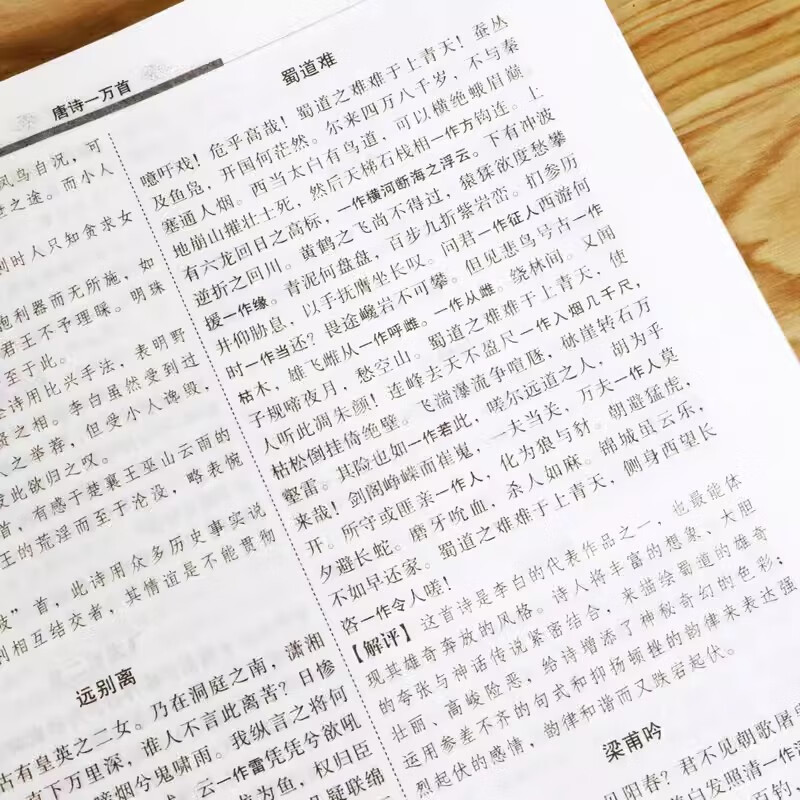 唐诗一万首
凤鸟自沉，可
之途。而小人
时人只知贪求女
抱利器而无所施，如
君王不予理睬。明珠
至于此。
诗用比兴手法，表明野
之相。李白虽然受到过
人之举荐，但受小人谗毁，
发此欲归之叹。
首，有感于楚襄王巫山云雨的
王的荒淫而至于沦没，略表惋
”首，此诗用众多历史事实说
相互结交者，其情谊是不能贯彻
远别离
古有皇英之二女。乃在洞庭之南，潇湘
直下万里深，谁人不言此离苦？日惨
啼烟兮鬼啸雨。我纵言之将何
云一作雷凭凭兮欲吼
龙为鱼，权归臣
蜀道难
噫吁戏！危乎高哉！蜀道之难难于上青天！蚕丛
及鱼凫，开国何茫然。尔来四万八千岁，不与秦
塞通人烟。西当太白有鸟道，可以横绝峨眉巅。
地崩山摧壮士死，然后天梯石栈相一作方钩连。上
有六龙回日之高标，一作横河断海之浮云。下有冲波
逆折之回川。黄鹤之飞尚不得过，猿猱欲度愁攀
援一作缘。青泥何盘盘，百步九折萦岩峦。扪参历
井仰胁息，以手抚膺坐长叹。问君一作征人西游何
时一作当还？畏途巉岩不可攀。但见悲鸟号古一作
枯木，雄飞雌从一作呼雌。一作从雌。绕林间。又闻
子规啼夜月，愁空山。蜀道之难难于上青天，使
人听此凋朱颜！连峰去天不盈尺一作入烟几千尺，
枯松倒挂倚绝壁。飞湍瀑流争喧豗，砯崖转石万
壑雷。其险也如一作若此，嗟尔远道之人，胡为乎
来哉！剑阁峥嵘而崔嵬，一夫当关，万夫一作人莫
开。所守或匪亲一作人，化为狼与豺。朝避猛虎，
夕避长蛇。磨牙吮血，杀人如麻。锦城虽云乐，
不如早还家。蜀道之难难于上青天，侧身西望长
咨一作令人嗟！
【解评】 这首诗是李白的代表作品之一，也最能体
现其雄奇奔放的风格。诗人将丰富的想象、大胆
的夸张与神话传说紧密结合，来描绘蜀道的雄奇
壮丽、高峻险恶，给诗增添了神秘奇幻的色彩；
运用参差不齐的句式和抑扬顿挫的韵律来表达强
烈起伏的感情，韵律和谐而又跌宕起伏。
梁甫吟
阳春？君不见朝歌屠
白发照清一作